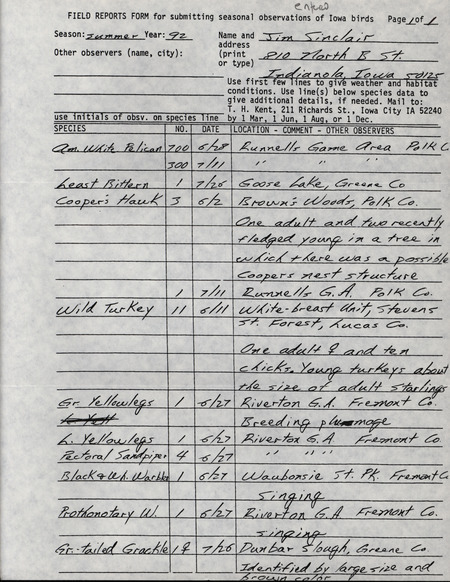 entered
FIELD REPORTS FORM for submitting seasonal observations of Iowa birds Page 1 of 1
Season: Summer Year: 92 Name and Jim Sinclair
Other observers (name, city): address
(print 810 North B St.
or type) Indianola, Iowa 50125
Use first few lines to give weather and habitat
conditions. Use line(s) below species data to
give additional details, if needed. Mail to:
T. H. Kent, 211 Richards St., Iowa City IA 52240
use initials of obsv. on species line by 1 Mar, 1 Jun, 1 Aug, or 1 Dec.
SPECIES NO. DATE LOCATION - COMMENT - OTHER OBSERVERS
Am. White Pelican 700 6/28 Runnells Game Area Polk C
300 7/11 " " "
Least Bittern 1 7/26 Goose Lake, Greene Co
Cooper's Hawk 3 6/2 Brown's Woods, Polk Co.
One adult and two recently
fledged young in a tree in
which there was a possible
Coopers nest structure
1 7/11 Runnells G.A. Polk Co.
Wild Turkey 11 6/11 White-breast Unit, Stevens
St. Forest, Lucas Co.
One adult ♀ and ten
chicks. Young turkeys about
the size of adult starlings
Gr. Yellowlegs 1 6/27 Riverton G.A. Fremont Co.
Breeding plumage
L. Yellowlegs 1 6/27 Riverton G.A Fremont Co.
Pectoral Sandpiper 4 6/27 " " " "
Black & Wh. Warbler 1 6/27 Waubonsie St. Pk. Fremont C
Singing
Prothonotary W. 1 6/27 Riverton G.A Fremont Co.
singing
Gr.-tailed Grackle 1♀ 7/26 Dunbar Slough, Greene Co.
Identified by large size and
brown color